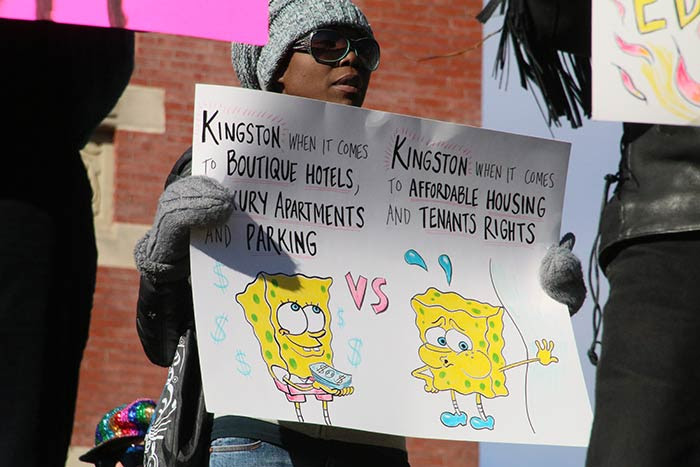 KINGSTON WHEN IT COMES
TO BOUTIQUE HOTELS,
XURY APARTMENTS
AND PARKING
VS
KINGSTON WHEN IT COMES
TO AFFORDABLE HOUSING
AND TENANTS RIGHTS
$ $ $ $ $ $
ED